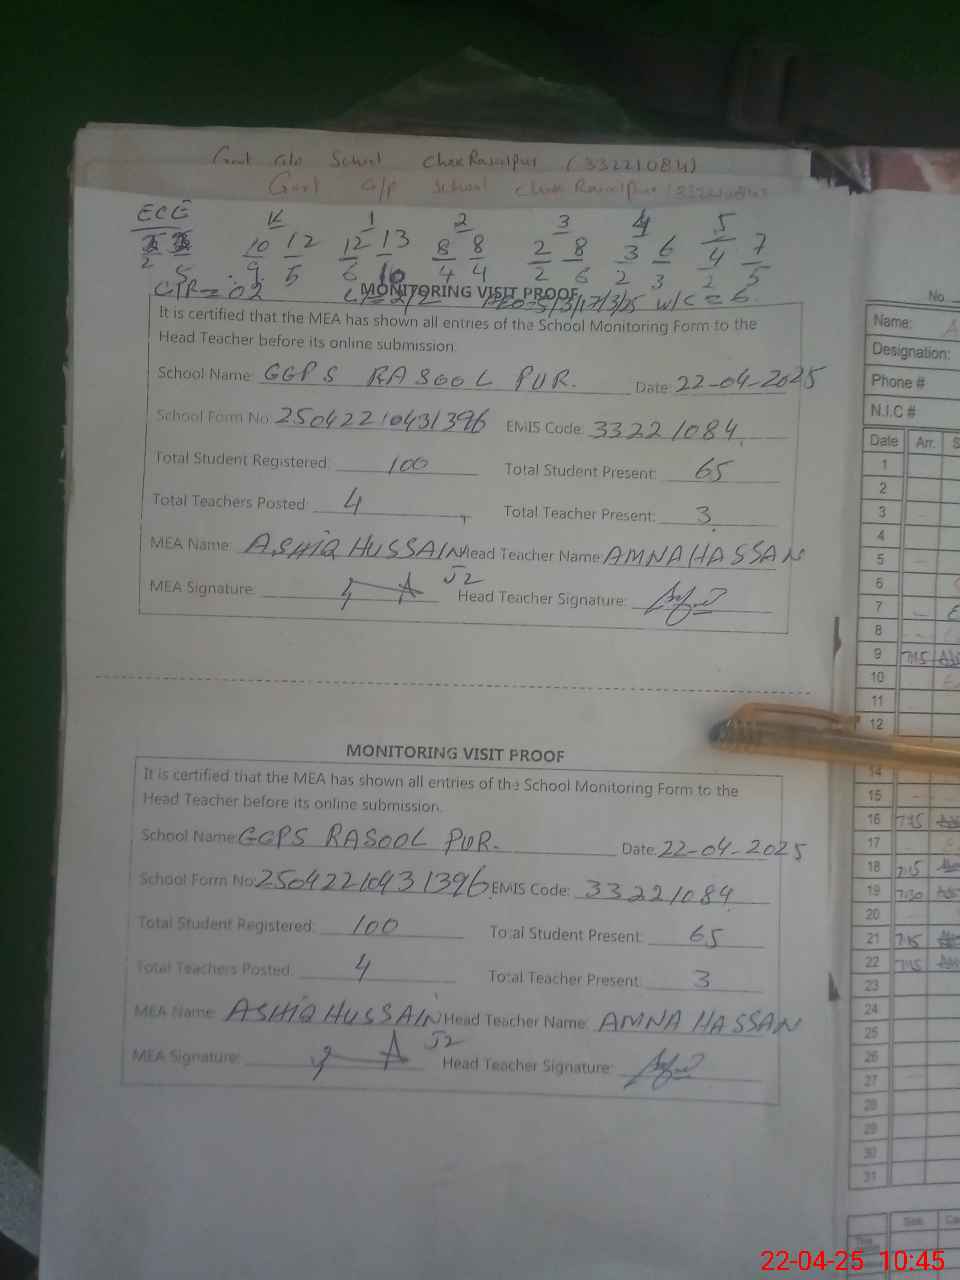 Govt G/P School Chak Rasoolpur (33221084)
Govt G/P School Chak Rasoolpur (33221084)
ECE K 1 2 3 4 5
10 12 12 13 8 8 2 8 3 6 4 7
2 5 9 5 6 10 4 4 2 6 2 3 2 5
CTR = 02 W/C = 6
MONITORING VISIT PROOF
It is certified that the MEA has shown all entries of the School Monitoring Form to the
Head Teacher before its online submission.
School Name: GGPS RASOOL PUR. Date: 22-04-2025
School Form No: 25042210431396 EMIS Code: 33221084
Total Student Registered: 100 Total Student Present: 65
Total Teachers Posted: 4 Total Teacher Present: 3
MEA Name: ASHIQ HUSSAIN Head Teacher Name: AMNA HASSAN
MEA Signature: 52 Head Teacher Signature:
MONITORING VISIT PROOF
It is certified that the MEA has shown all entries of the School Monitoring Form to the
Head Teacher before its online submission.
School Name: GGPS RASOOL PUR. Date: 22-04-2025
School Form No: 25042210431396 EMIS Code: 33221084
Total Student Registered: 100 Total Student Present: 65
Total Teachers Posted: 4 Total Teacher Present: 3
MEA Name: ASHIQ HUSSAIN Head Teacher Name: AMNA HASSAN
MEA Signature: 52 Head Teacher Signature:
No.
Name:
Designation:
Phone #
N.I.C #
Date Arr.
1
2
3
4
5
6
7
8
9 7:15
10
11
12
14
15
16 7:15
17
18 7:15
19 7:30
20
21 7:15
22 7:15
23
24
25
26
27
28
29
30
31
22-04-25 10:45